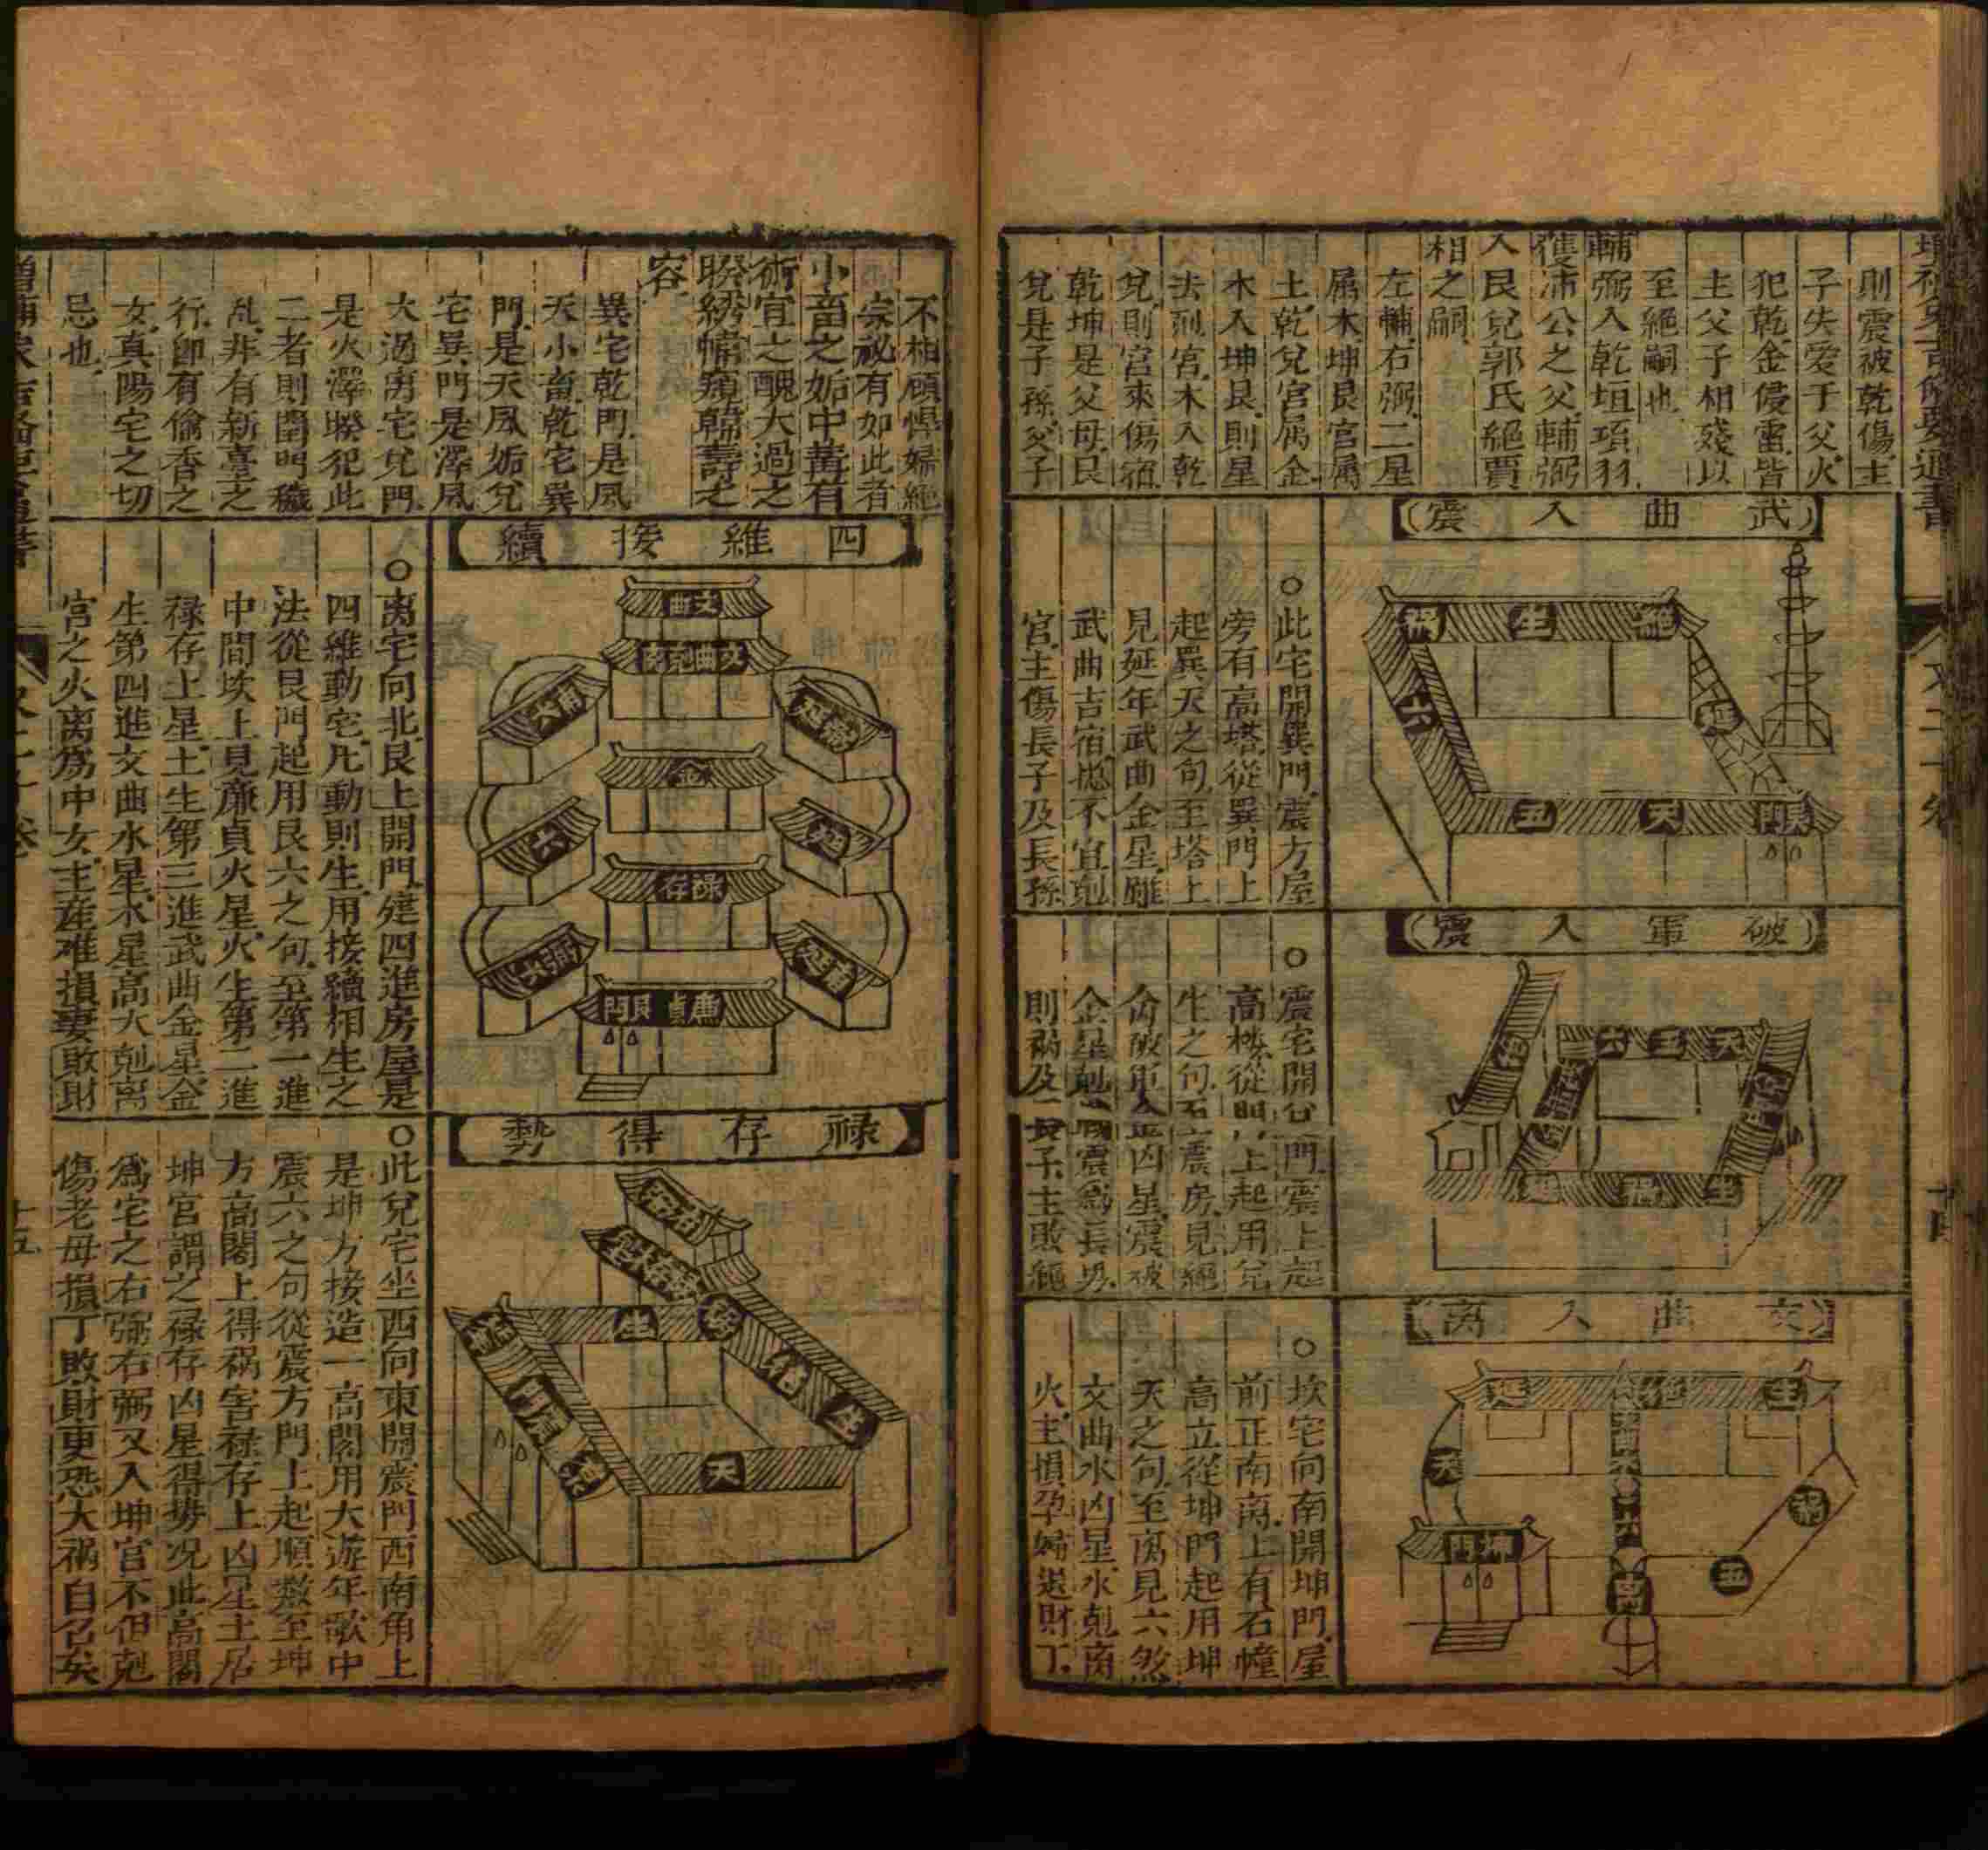 則震被乾傷主
子失爱于父火
犯乾金侵雷皆
主父子相殘以
至絕嗣也
輔弼入乾垣項羽
獲沛公之父輔弼
入艮兌郭氏絕賈
相之嗣
左輔右弼二星
屬木坤艮宮屬
土乾兌宮属金
木入坤艮則星
法剋宮木入乾
兌則宮來傷宿
乾坤是父母艮
兌是子孫父子
武曲入震
〇此宅開巽門震方屋
旁有高塔從巽門上
起巽天之句至塔上
見延年武曲金星雖
武曲吉宿摠不宜剋
宮主傷長子及長孫
破軍入震
〇震宅開兌門震上起
高楼從門上起用兌
生之句至震房見絕
命破軍金凶星震被
金星剋震爲長男
則祸及長子主敗絕
文曲入离
〇坎宅向南開坤門屋
前正南离上有石幢
高立從坤門起用坤
天之句至离見六煞
文曲水凶星水剋离
火主損孕婦退財丁
不相顧悍婦絕
宗祀有如此者
小畜之姤中冓有
術宜之醜大過之
睽綉幃窺韓壽之
容
巽宅乾門是風
天小畜乾宅巽
門是天風姤兌
宅巽門是澤風
大過离宅兌門
是火澤睽犯此
二者則閨門穢
乱非有新臺之
行卽有偷香之
女真陽宅之切
忌也
四維接續
文曲
金
祿存
廉貞
艮門
〇离宅向北艮上開門建四進房屋是
四維動宅凡動則生用接續相生之
法從艮門起用艮六之句至第一進
中間坎上見廉貞火星火生第二進
禄存土星土生第三進武曲金星金
生第四進文曲水星水星高大剋离
宮之火离爲中女主產难損妻敗財
禄存得勢
〇此兌宅坐西向東開震門西南角上
是坤方接造一高閣用大遊年歌中
震六之句從震方門上起順數至坤
方高閣上得祸害禄存土凶星土居
坤宮謂之禄存凶星得势况此高閣
爲宅之右弼右弼又入坤宮不但剋
傷老母損丁敗財更恐大禍自召矣
十五